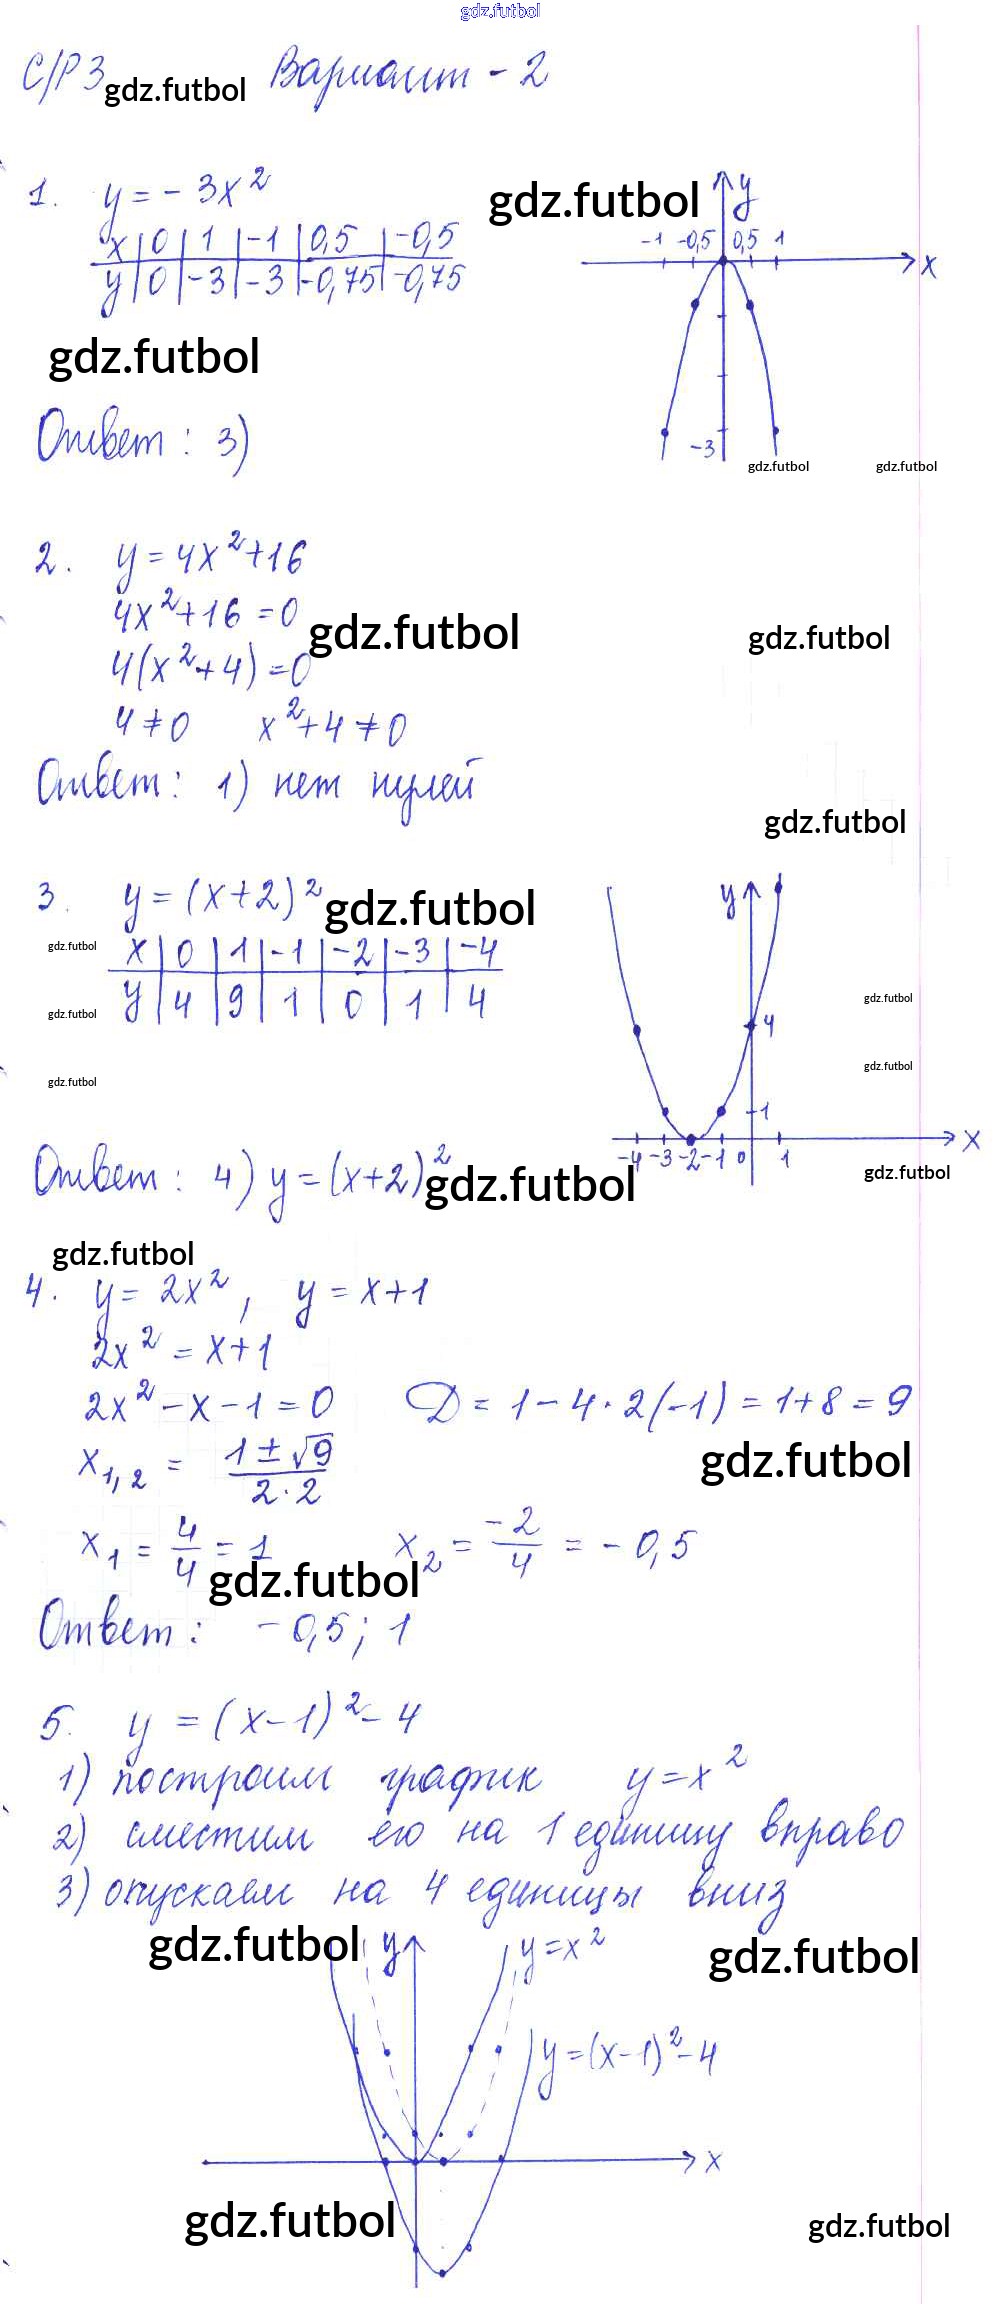 gdz.futbol
С/Р 3 gdz.futbol Вариант - 2
1. y = - 3x² gdz.futbol y
x | 0 | 1 | -1 | 0,5 | -0,5 -1 -0,5 0,5 1
y | 0 | -3 | -3 | -0,75 | -0,75 x
gdz.futbol
Ответ : 3) -3
gdz.futbol gdz.futbol
2. y = 4x² + 16
4x² + 16 = 0 gdz.futbol gdz.futbol
4(x² + 4) = 0
4 ≠ 0 x² + 4 ≠ 0
Ответ : 1) нет нулей
gdz.futbol
3. y = (x + 2)² gdz.futbol y
gdz.futbol x | 0 | 1 | -1 | -2 | -3 | -4
gdz.futbol y | 4 | 9 | 1 | 0 | 1 | 4 gdz.futbol
4
gdz.futbol gdz.futbol
1
x
-4 -3 -2 -1 0 1
Ответ : 4) y = (x+2)² gdz.futbol gdz.futbol
gdz.futbol
4. y = 2x² , y = x+1
2x² = x+1
2x² - x - 1 = 0 D = 1 - 4 · 2(-1) = 1+8 = 9
x1,2 = 1 ± √9 / 2 · 2 gdz.futbol
x1 = 4/4 = 1 x2 = -2/4 = - 0,5
gdz.futbol
Ответ : - 0,5 ; 1
5. y = (x - 1)² - 4
1) построим график y = x²
2) сместим его на 1 единицу вправо
3) опускаем на 4 единицы вниз
gdz.futbol y y = x² gdz.futbol
y = (x-1)² - 4
x
gdz.futbol gdz.futbol